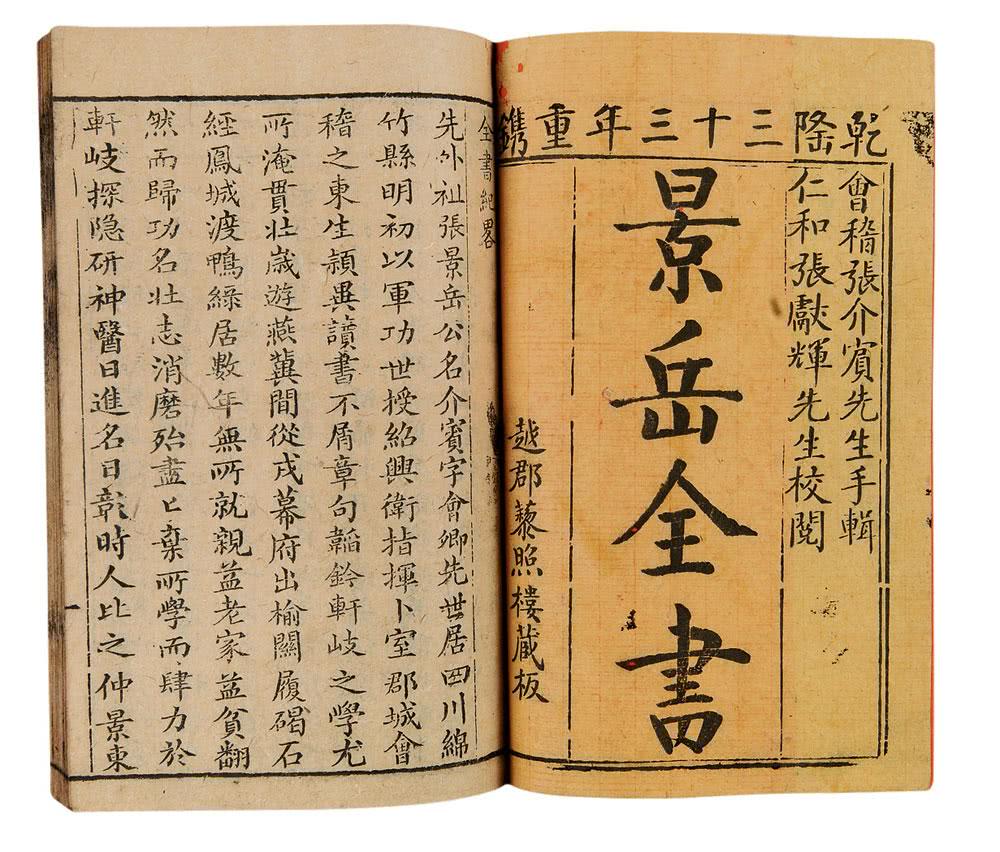 乾隆三十三年重鐫
會稽張介賓先生手輯
仁和張獻輝先生校閱
景岳全書
越郡藜照樓藏板
全書紀畧
先外祖張景岳公名介賓字會卿先世居四川綿
竹縣明初以軍功世授紹興衛指揮卜室郡城會
稽之東生穎異讀書不屑章句韜鈐軒岐之學尤
所淹貫壯歲遊燕冀間從戎幕府出榆關履碣石
經鳳城渡鴨綠居數年無所就親益老家益貧翻
然而歸功名壯志消磨殆盡匕棄所學而肆力於
軒岐探隐研神醫日進名日彰時人比之仲景東
一